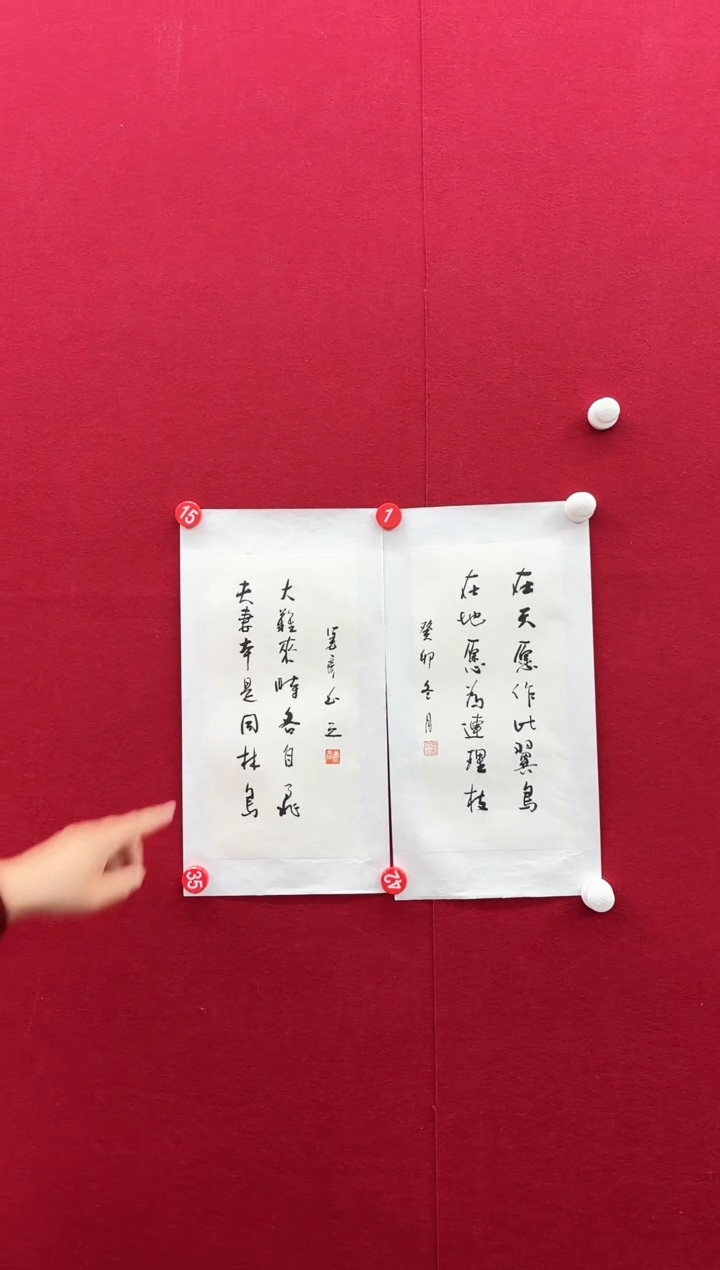 在天愿作比翼鳥
在地愿為連理枝
癸卯冬月
夫妻本是同林鳥
大難來時各自飛
15
1
35
42